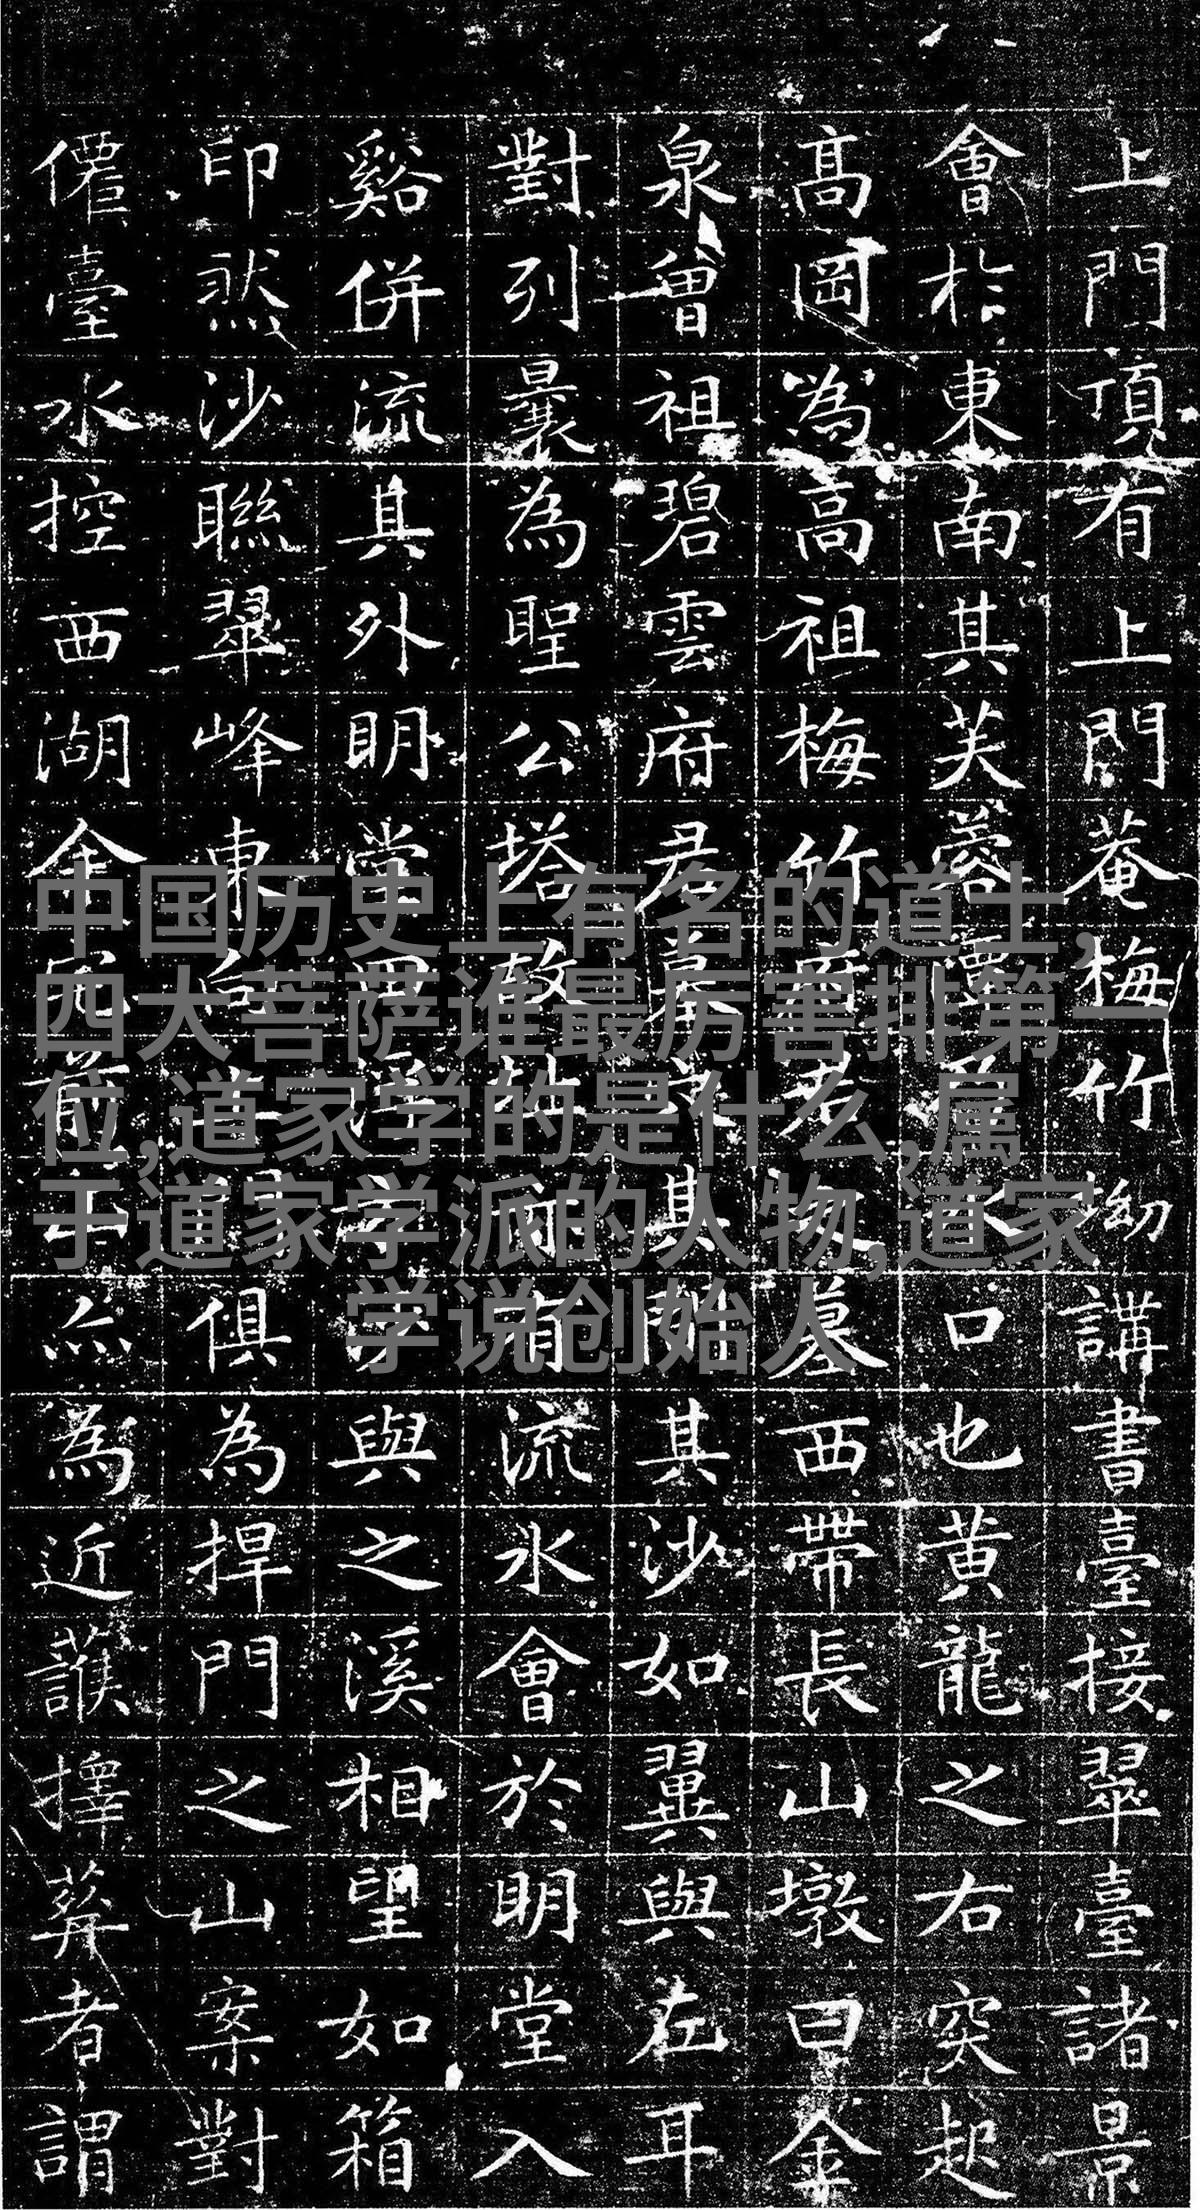 上門頂有上門菴梅竹坳講書臺接翠臺諸景
會扵東南其芙蓉口也黃龍之右突起
高岡為高祖梅竹墓西帶長山墩曰金
泉曾祖碧雲府君墓其其沙如翼與左耳
對列曩為聖公塔而有流氷會於明堂入
谿併流其外明堂與之溪相望如箱
印然沙聯翠峰東俱為捍門之山案對
僊臺水控西湖金前為近擇葬者謂
中国历史上有名的道士,
四大菩萨谁最厉害排第一
位,道家学的是什么,属
于道家学派的人物,道家
学说创始人